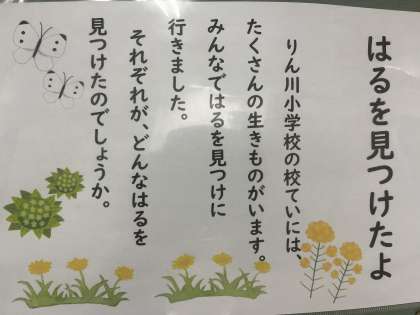 はるを見つけたよ
りん川小学校の校ていには、
たくさんの生きものがいます。
みんなではるを見つけに
行きました。
それぞれが、どんなはるを
見つけたのでしょうか。